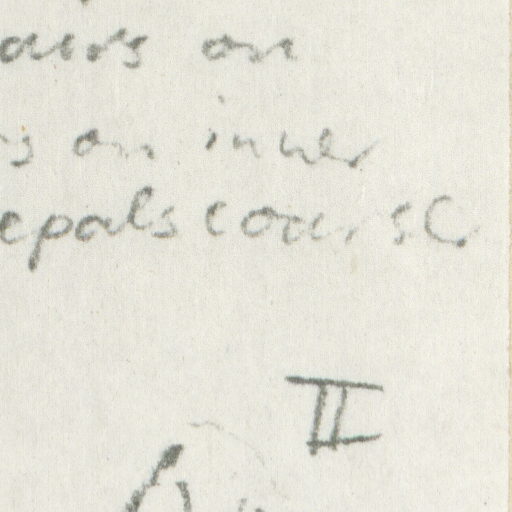 airs on
s on inner
epals course
II